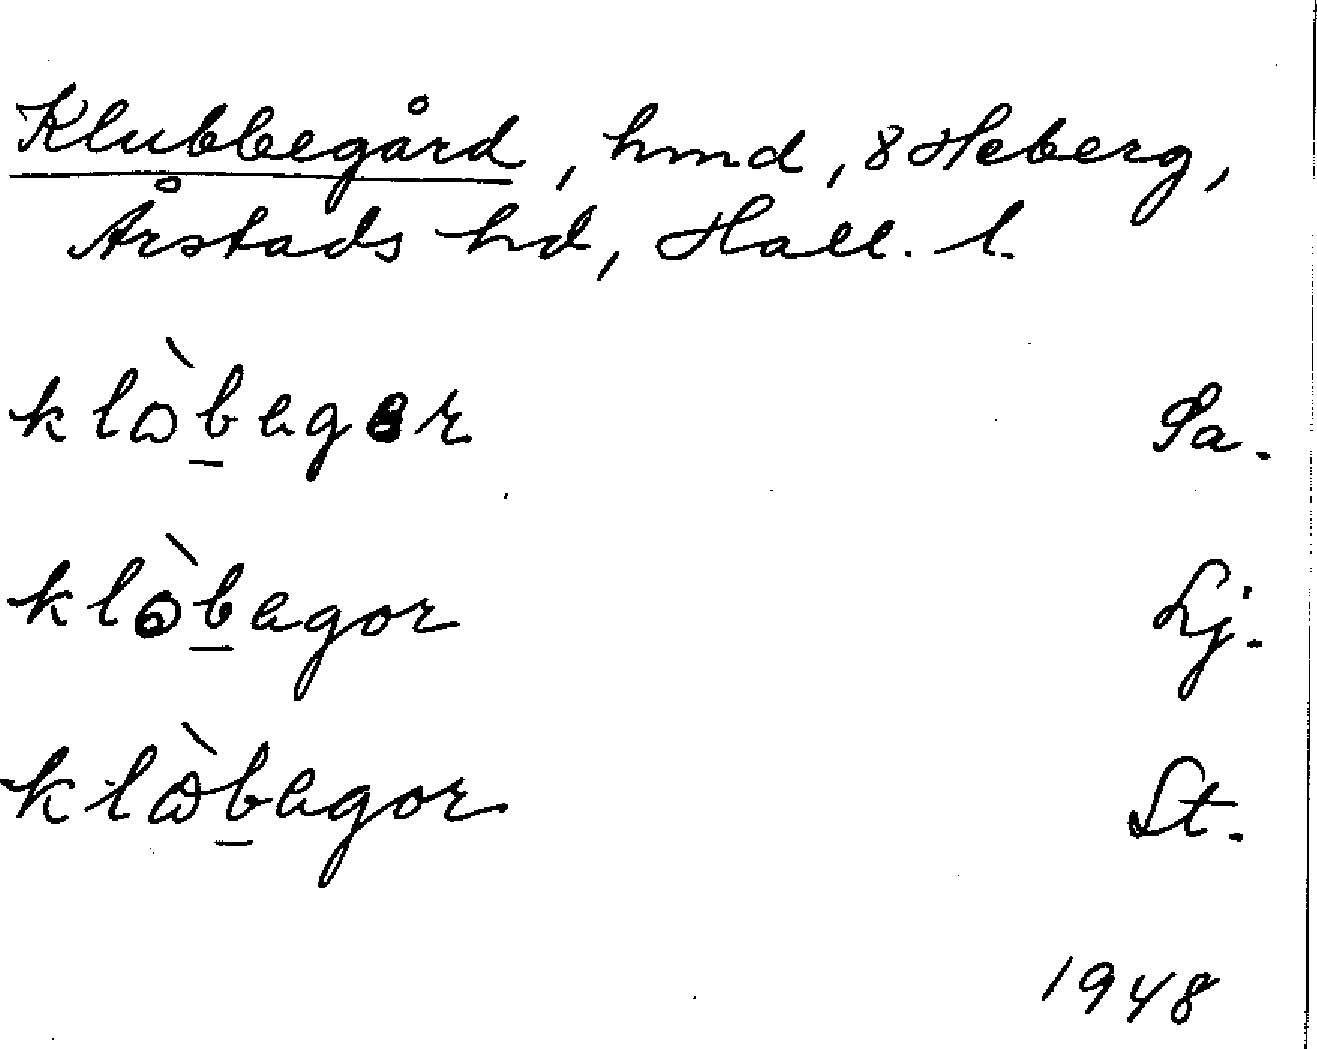 Klubbegård, hmd, 8 Heberg,
Årstads hd, Hall. l.
klòb̲egər Sa.
klòb̲egor Lj.
klòb̲egor St.
1948